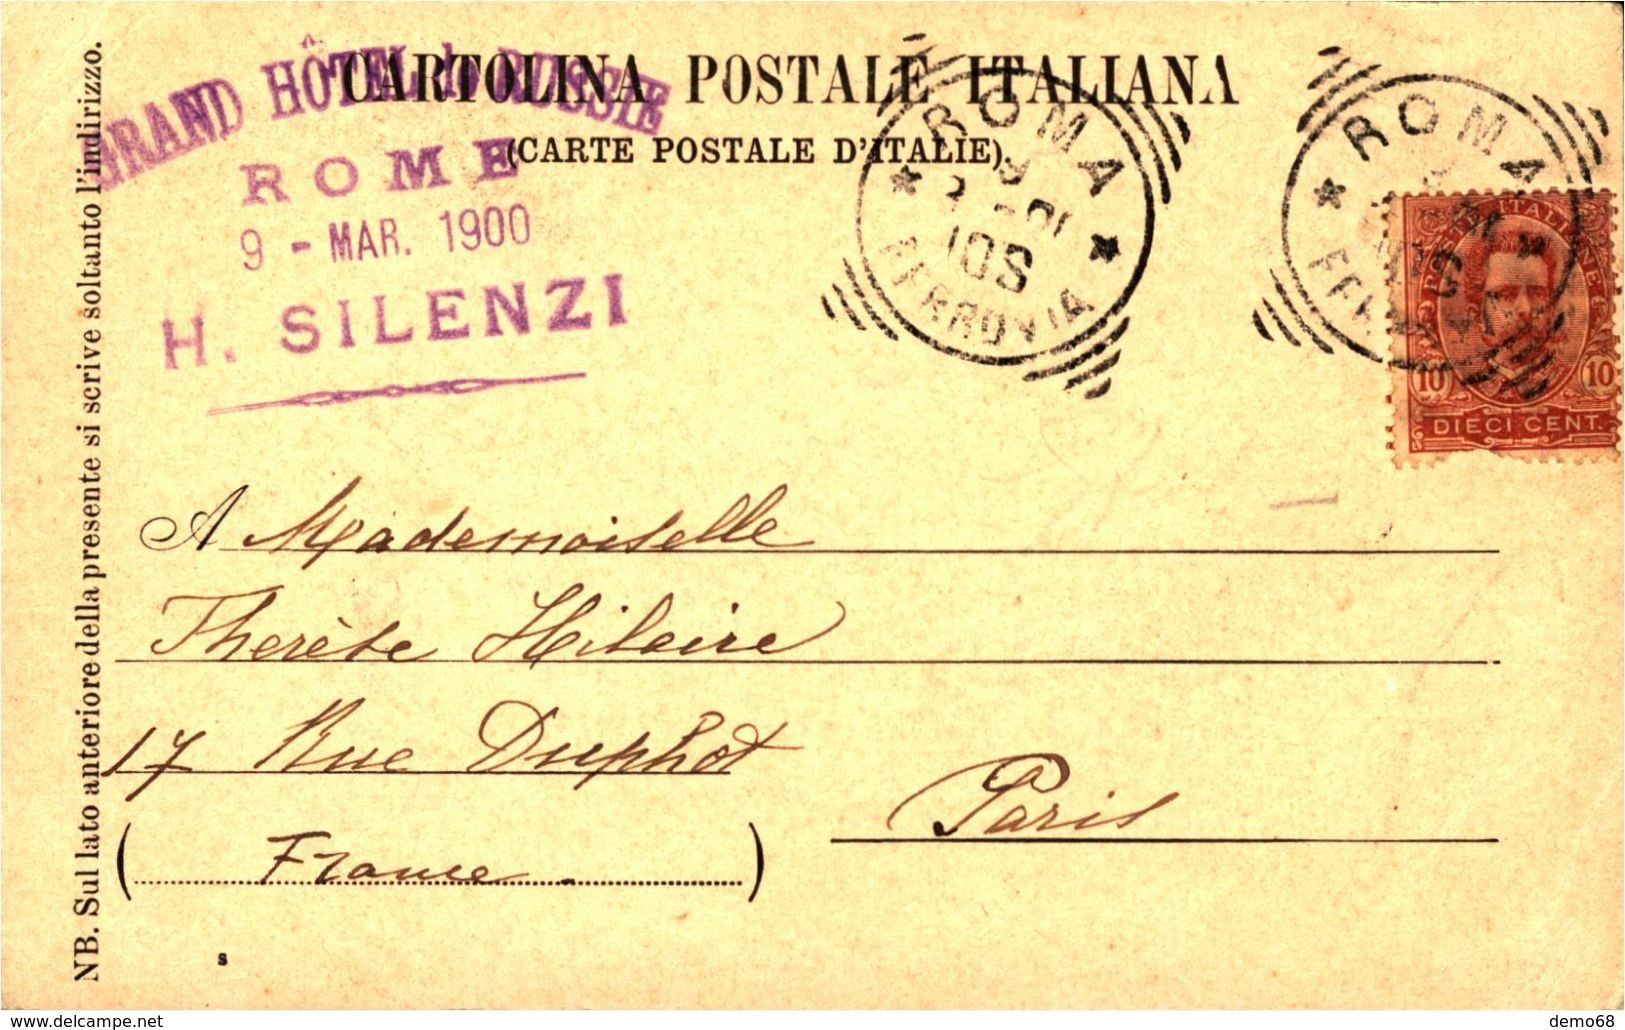 CARTOLINA POSTALE ITALIANA
(CARTE POSTALE D'ITALIE).
GRAND HÔTEL RUSSIE
ROME
9 - MAR. 1900
H. SILENZI
ROMA
10S
FERROVIA
ROMA
POSTE ITALIANE
10 10
DIECI CENT.
A Mademoiselle
Therèse Hilaire
17 Rue Duphot
Paris
(France.)
NB. Sul lato anteriore della presente si scrive soltanto l'indirizzo.
s
www.delcampe.net
demo68